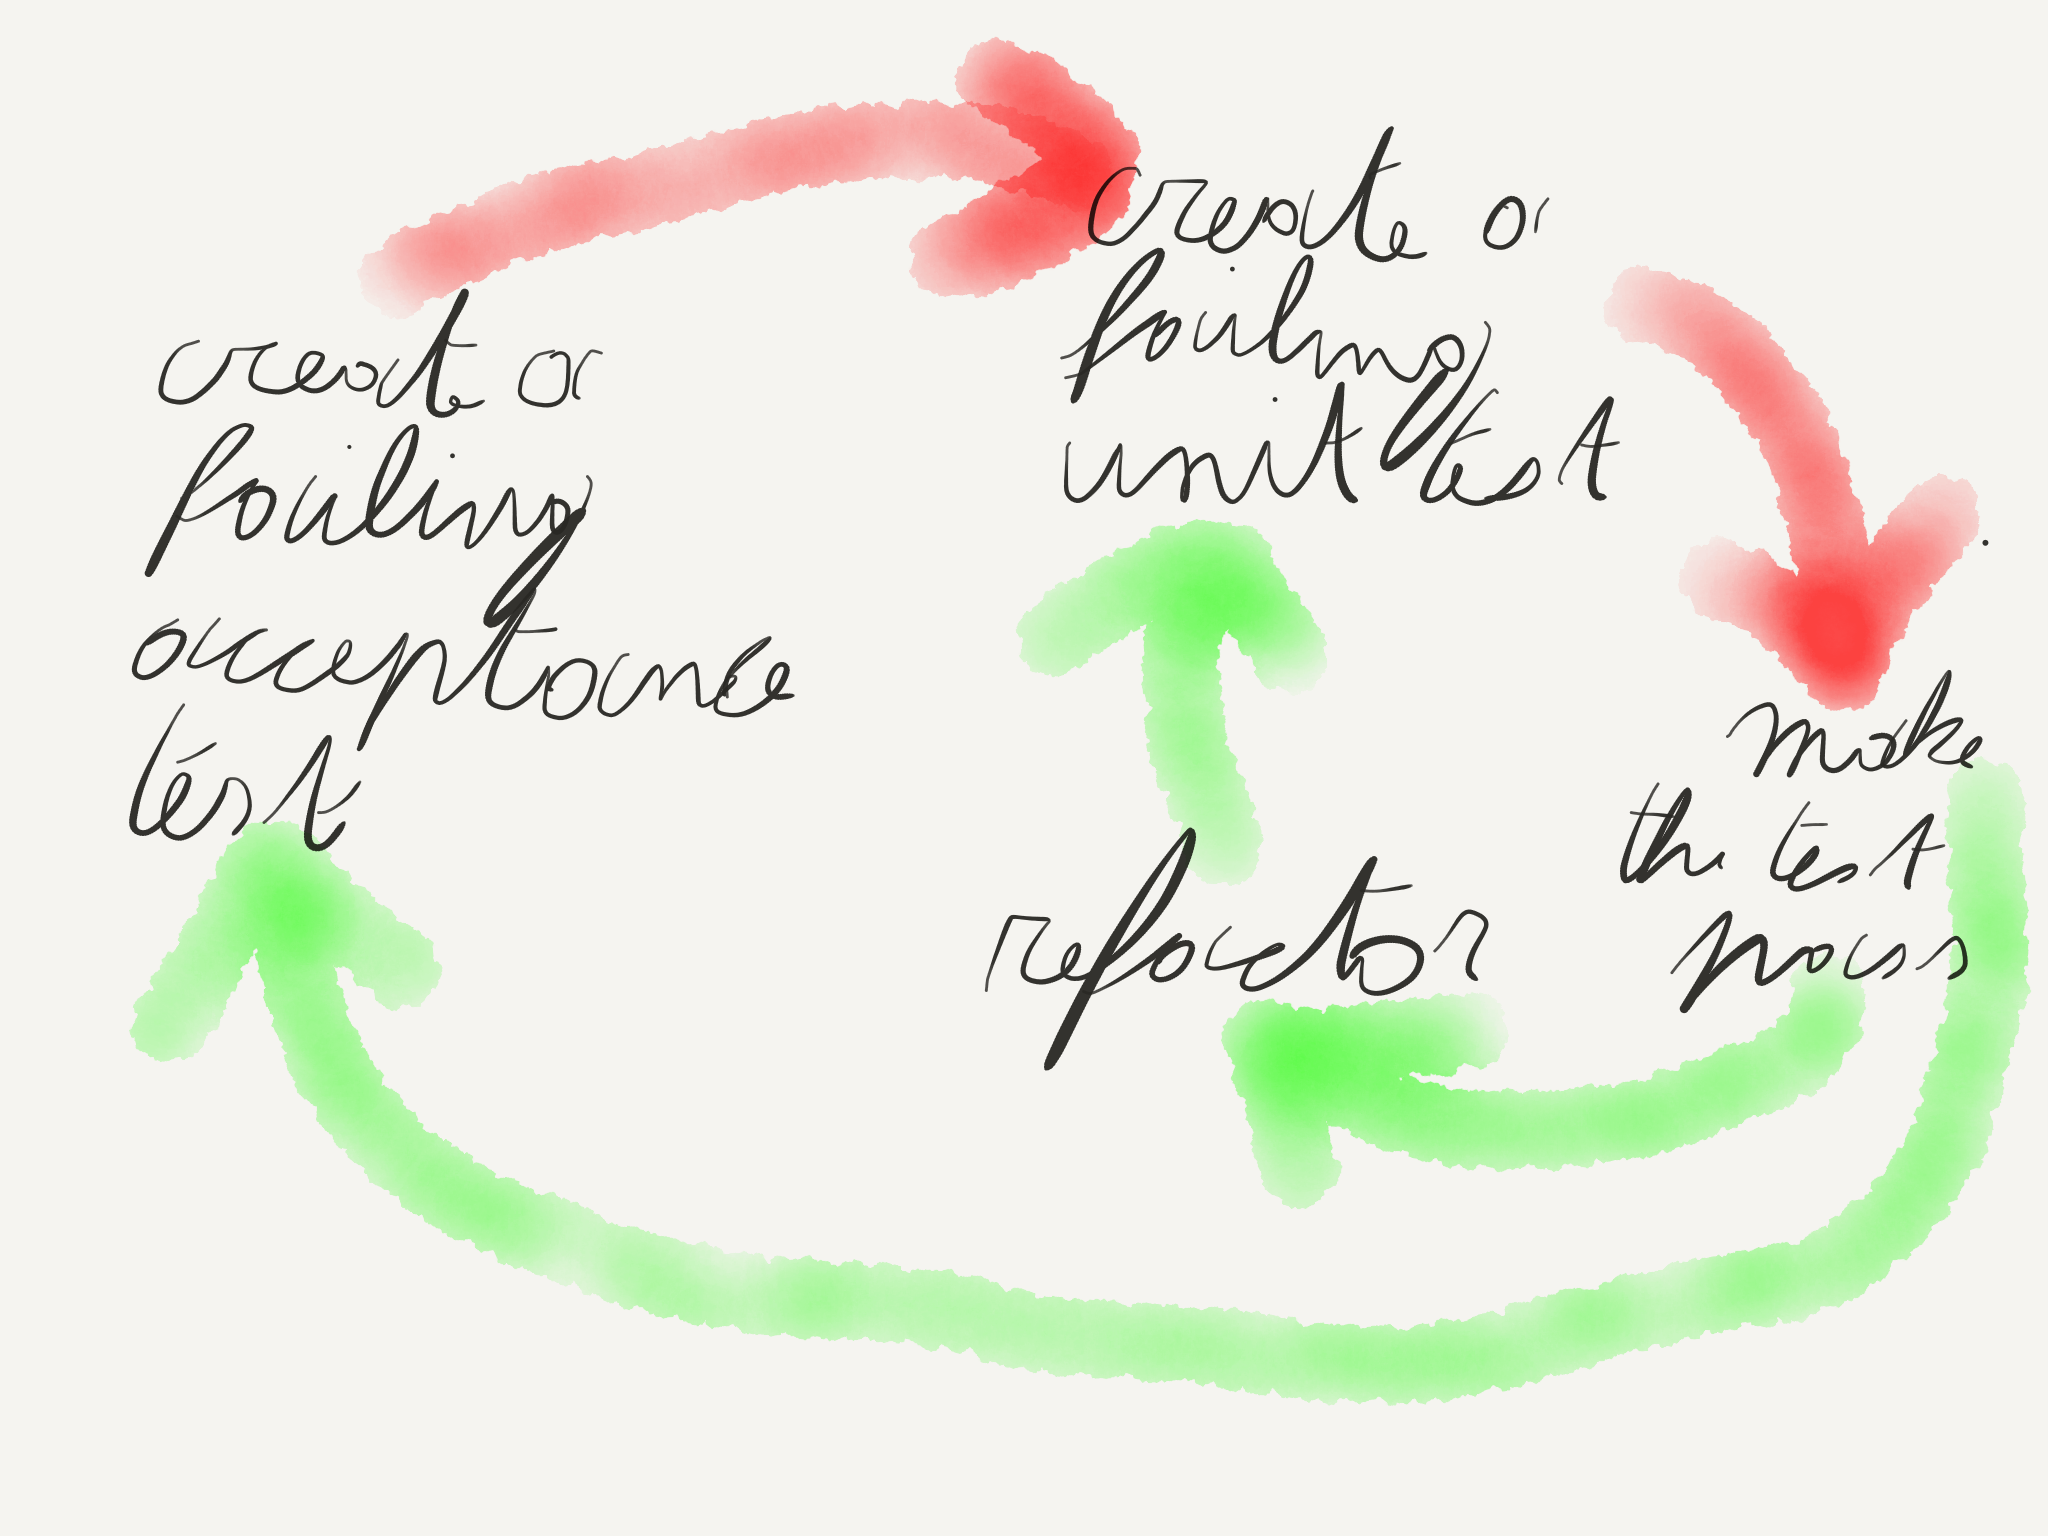 create a
failing
acceptance
test
create a
failing
unit test
make
the test
pass
refactor